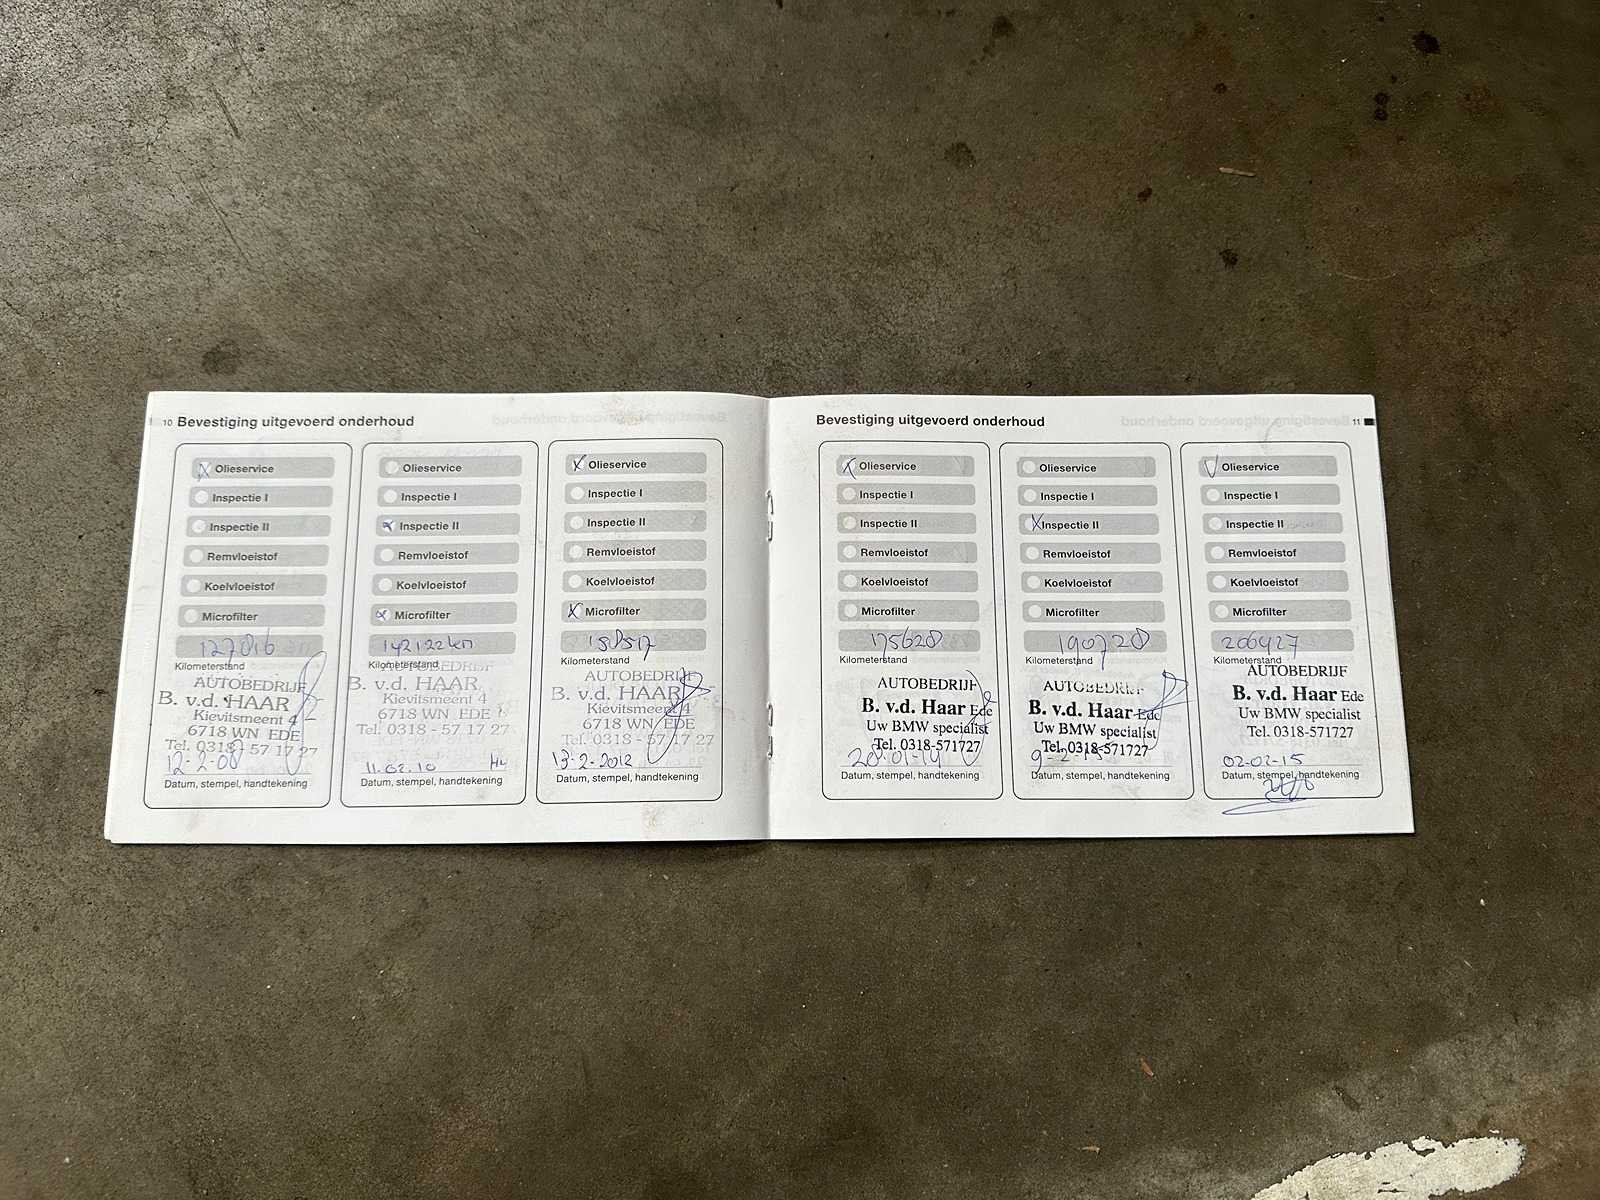 10 Bevestiging uitgevoerd onderhoud
Olieservice
Inspectie I
Inspectie II
Remvloeistof
Koelvloeistof
Microfilter
127816
Kilometerstand
AUTOBEDRIJF
B. v.d. HAAR
Kievitsmeent 4
6718 WN EDE
Tel. 0318 - 57 17 27
12-2-08
Datum, stempel, handtekening
Olieservice
Inspectie I
Inspectie II
Remvloeistof
Koelvloeistof
Microfilter
142122km
Kilometerstand
AUTOBEDRIJF
B. v.d. HAAR
Kievitsmeent 4
6718 WN EDE
Tel. 0318 - 57 17 27
11.02.10
Datum, stempel, handtekening
Olieservice
Inspectie I
Inspectie II
Remvloeistof
Koelvloeistof
Microfilter
158517
Kilometerstand
AUTOBEDRIJF
B. v.d. HAAR
Kievitsmeent 4
6718 WN EDE
Tel. 0318 - 57 17 27
13-2-2012
Datum, stempel, handtekening
Bevestiging uitgevoerd onderhoud 11
Olieservice
Inspectie I
Inspectie II
Remvloeistof
Koelvloeistof
Microfilter
175628
Kilometerstand
AUTOBEDRIJF
B. v.d. Haar Ede
Uw BMW specialist
Tel. 0318-571727
Datum, stempel, handtekening
Olieservice
Inspectie I
Inspectie II
Remvloeistof
Koelvloeistof
Microfilter
190728
Kilometerstand
AUTOBEDRIJF
B. v.d. Haar Ede
Uw BMW specialist
Tel. 0318-571727
Datum, stempel, handtekening
Olieservice
Inspectie I
Inspectie II
Remvloeistof
Koelvloeistof
Microfilter
206427
Kilometerstand
AUTOBEDRIJF
B. v.d. Haar Ede
Uw BMW specialist
Tel. 0318-571727
02-02-15
Datum, stempel, handtekening